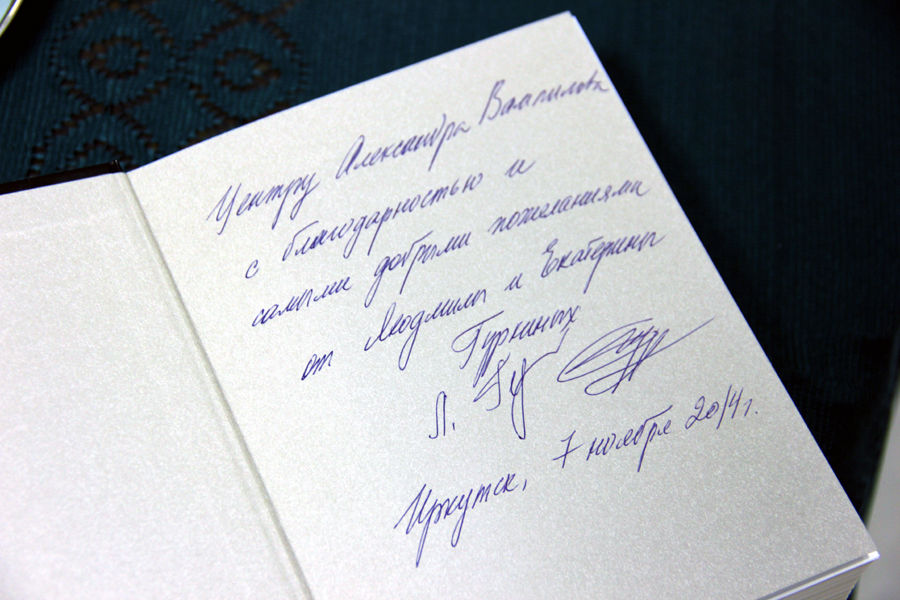 Центру Александра Вампилова
с благодарностью и
самыми добрыми пожеланиями
от Людмилы и Екатерины
Гуркиных
Л. Гу
Иркутск, 7 ноября 2014 г.